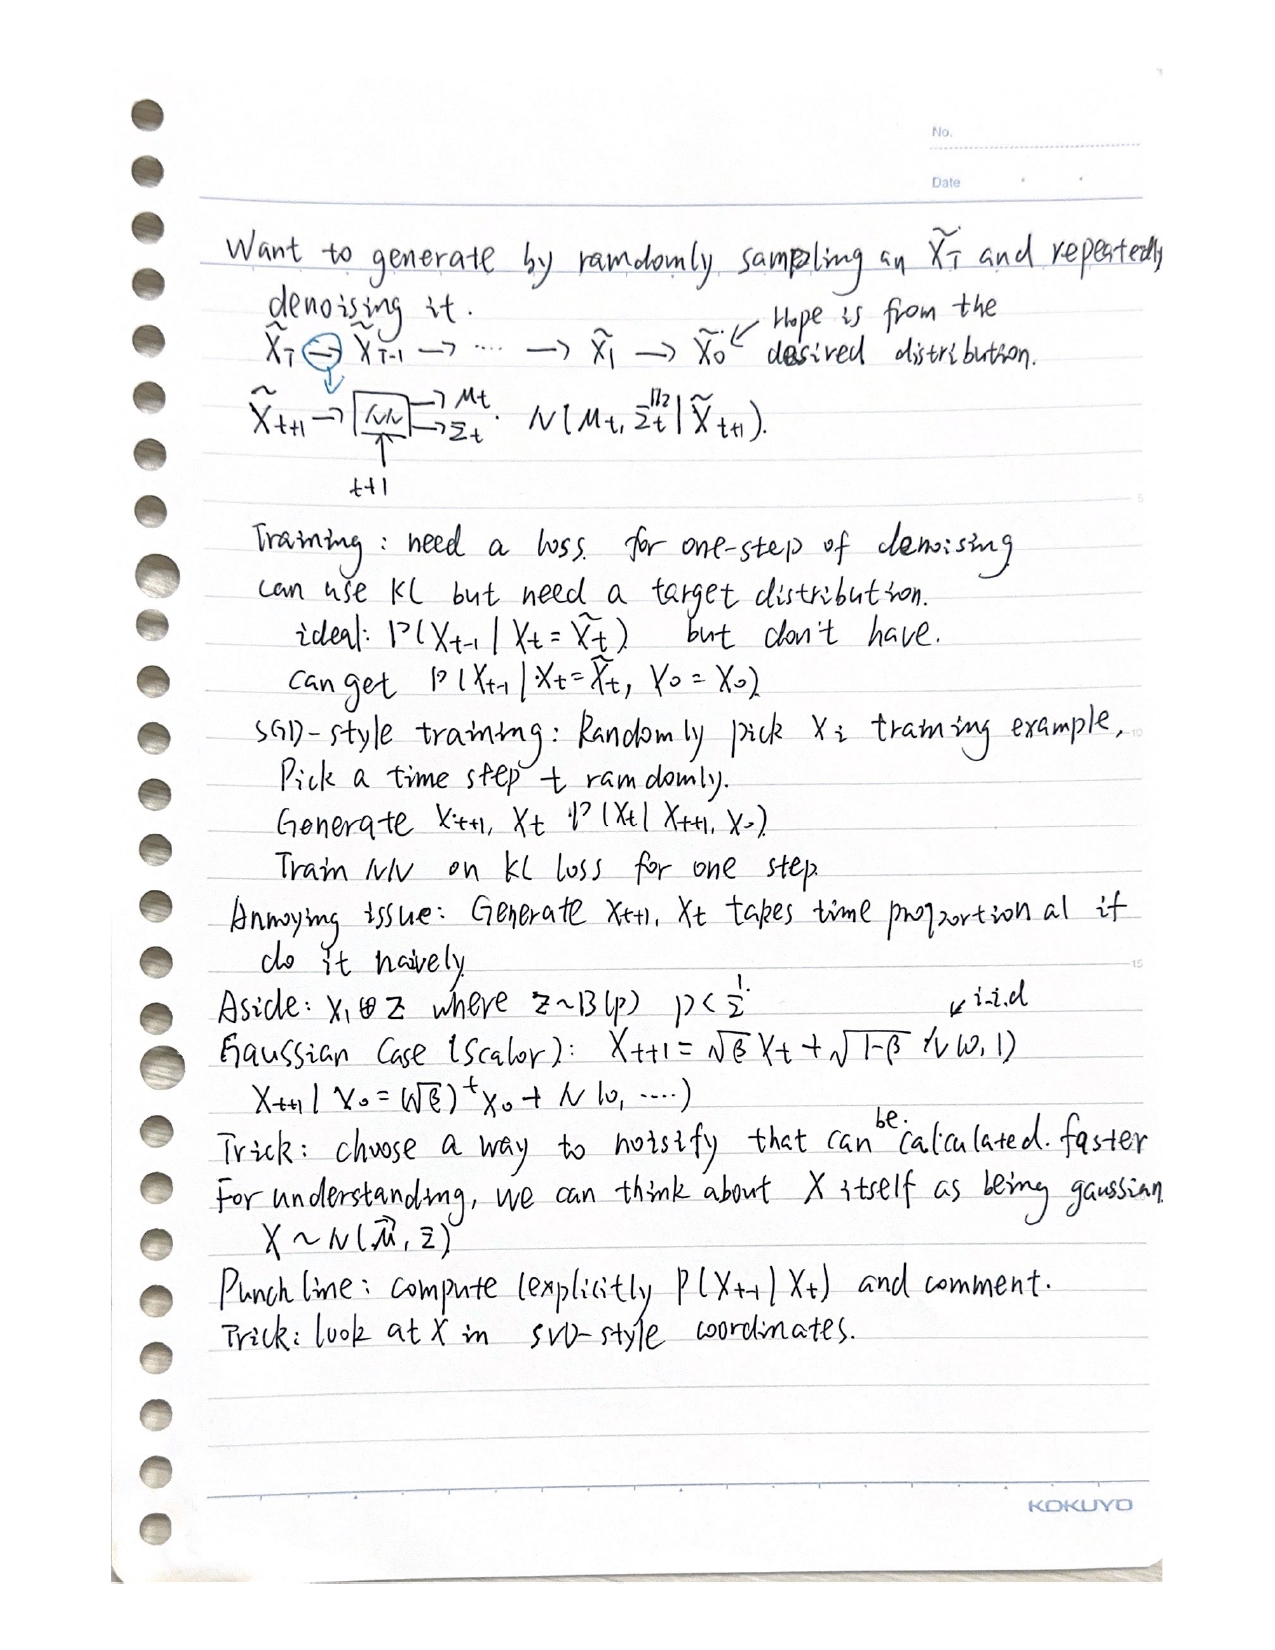 No.
Date
Want to generate by ramdomly sampling an X̃T and repeatedly
denoising it.
X̃T → X̃T-1 → ···· → X̃1 → X̃0 ↙ Hope is from the
desired distribution.
X̃t+1 → NN → Mt → Σt . N(Mt, Σt^1/2 | X̃t+1).
t+1
5
Training: need a loss. for one-step of denoising
can use KL but need a target distribution.
ideal: P(Xt-1 | Xt = X̃t) but don't have.
can get P(Xt-1 | Xt = X̃t, X0 = X0)
SGD-style training: Randomly pick Xi training example,
10
Pick a time step t ramdomly.
Generate Xt+1, Xt P(Xt | Xt+1, X0)
Train NN on KL loss for one step.
Annoying issue: Generate Xt+1, Xt takes time proportional if
do it naively
15
Aside: X1 ⊕ Z where Z~B(p) p < 1/2.
↙ i.i.d
Gaussian Case (Scalor): Xt+1 = √β Xt + √1-β N(0, 1)
Xt+1 | X0 = (√β)^t X0 + N(0, ····)
Trick: choose a way to noisify that can be calculated. faster
For understanding, we can think about X itself as being gaussian
X ~ N(μ⃗, Σ)
Punch line: compute (explicitly P(Xt-1 | Xt) and comment.
Trick: look at X in SVD-style coordinates.
KOKUYO